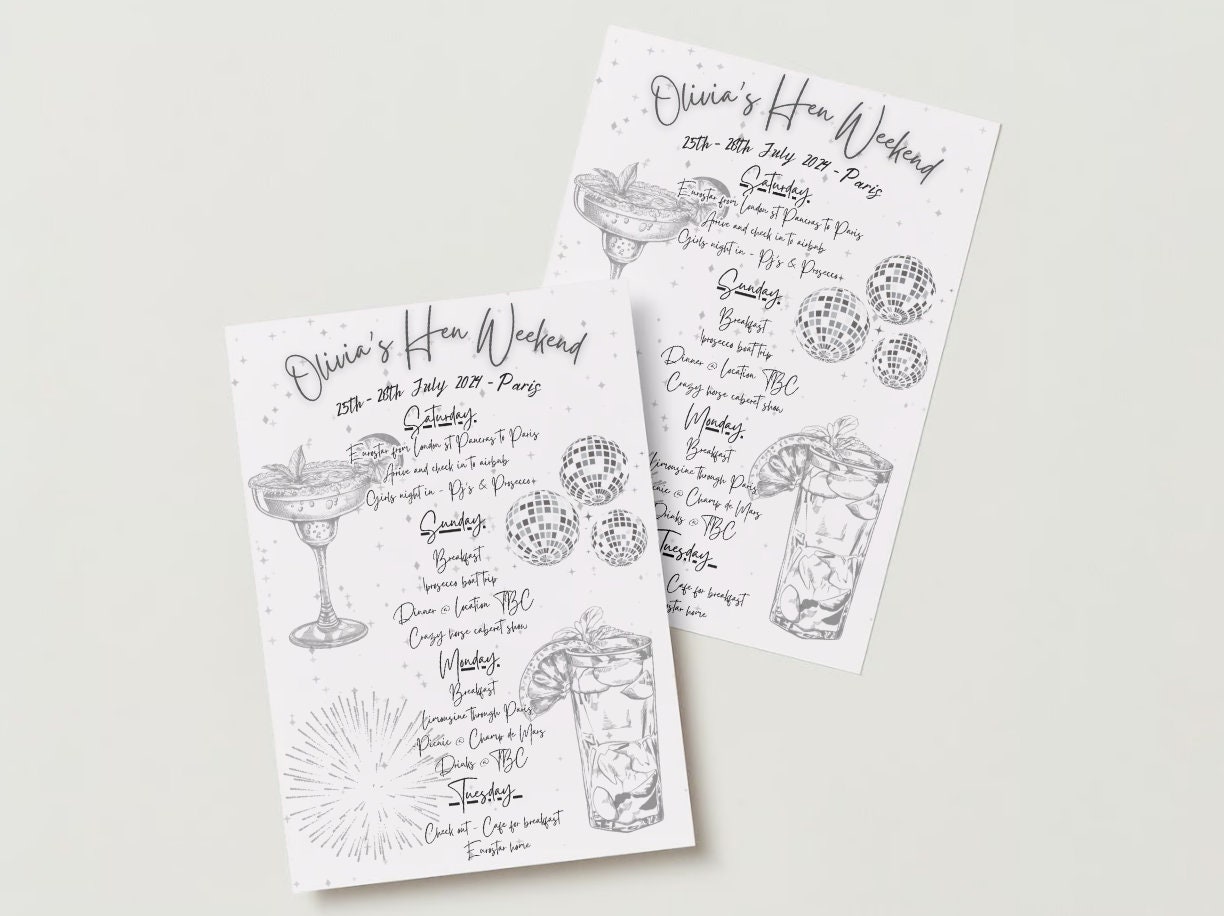 Olivia's Hen Weekend
25th - 28th July 2024 - Paris
Saturday
Eurostar from London st Pancras to Paris
Arive and check in to airbnb
Girls night in - Pj's & Prosecco
Sunday
Breakfast
1prosecco boat trip
Dinner @ Location TBC
Crazy horse caberet show
Monday
Breakfast
Limousine through Paris
Picnic @ Champ de Mars
Drinks @ TBC
Tuesday
Check out - Cafe for breakfast
Eurostar home
Olivia's Hen Weekend
25th - 28th July 2024 - Paris
Saturday
Eurostar from London st Pancras to Paris
Arive and check in to airbnb
Girls night in - Pj's & Prosecco
Sunday
Breakfast
1prosecco boat trip
Dinner @ Location TBC
Crazy horse caberet show
Monday
Breakfast
Limousine through Paris
@ Champ de Mars
Drinks @ TBC
Tuesday
Cafe for breakfast
home